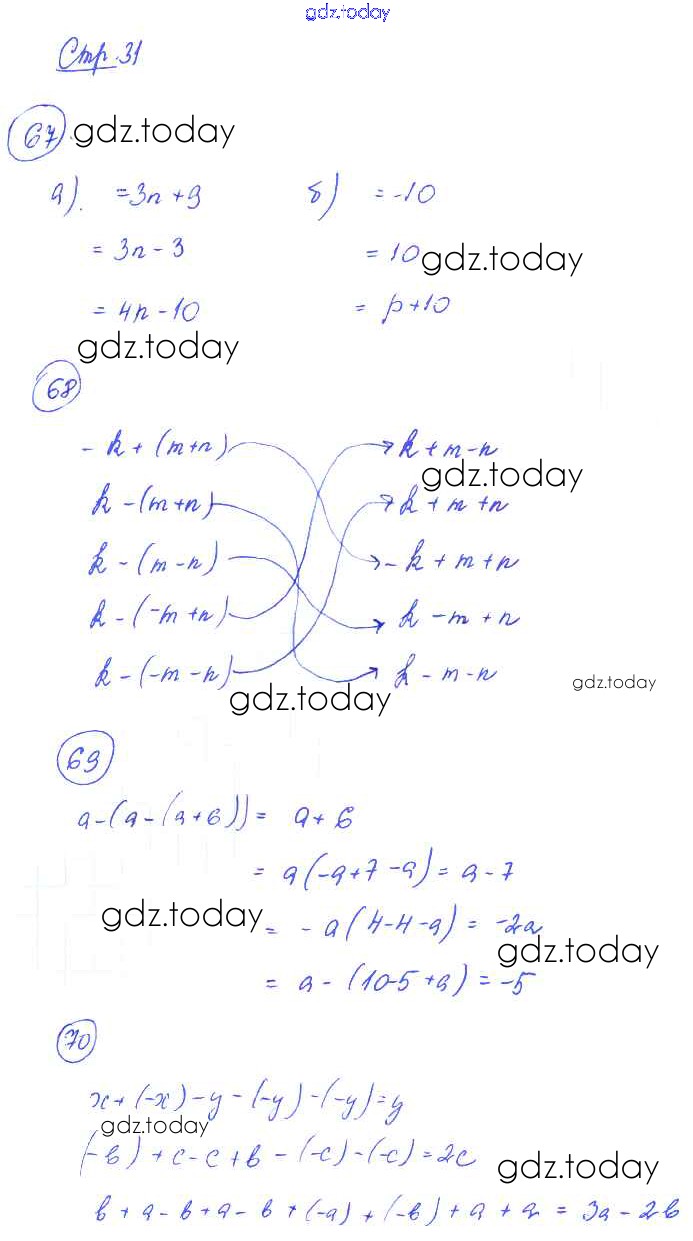 gdz.today
Стр. 31
67 gdz.today
а). = 3n + 9 б) = -10
= 3n - 3 = 10 gdz.today
= 4n - 10 = p + 10
gdz.today
68
- k + (m+n) k + m - n
gdz.today
k - (m+n) k + m + n
k - (m - n) - k + m + n
k - (-m + n) k - m + n
k - (-m - n) k - m - n
gdz.today gdz.today
69
a - (a - (a + б)) = a + б
= a (-a + 7 - a) = a - 7
gdz.today = - a (4 - 4 - a) = -2a
gdz.today
= a - (10 - 5 + a) = -5
70
x + (-x) - y - (-y) - (-y) = y
gdz.today
(-b) + c - c + b - (-c) - (-c) = 2c
gdz.today
b + a - b + a - b + (-a) + (-b) + a + a = 3a - 2b